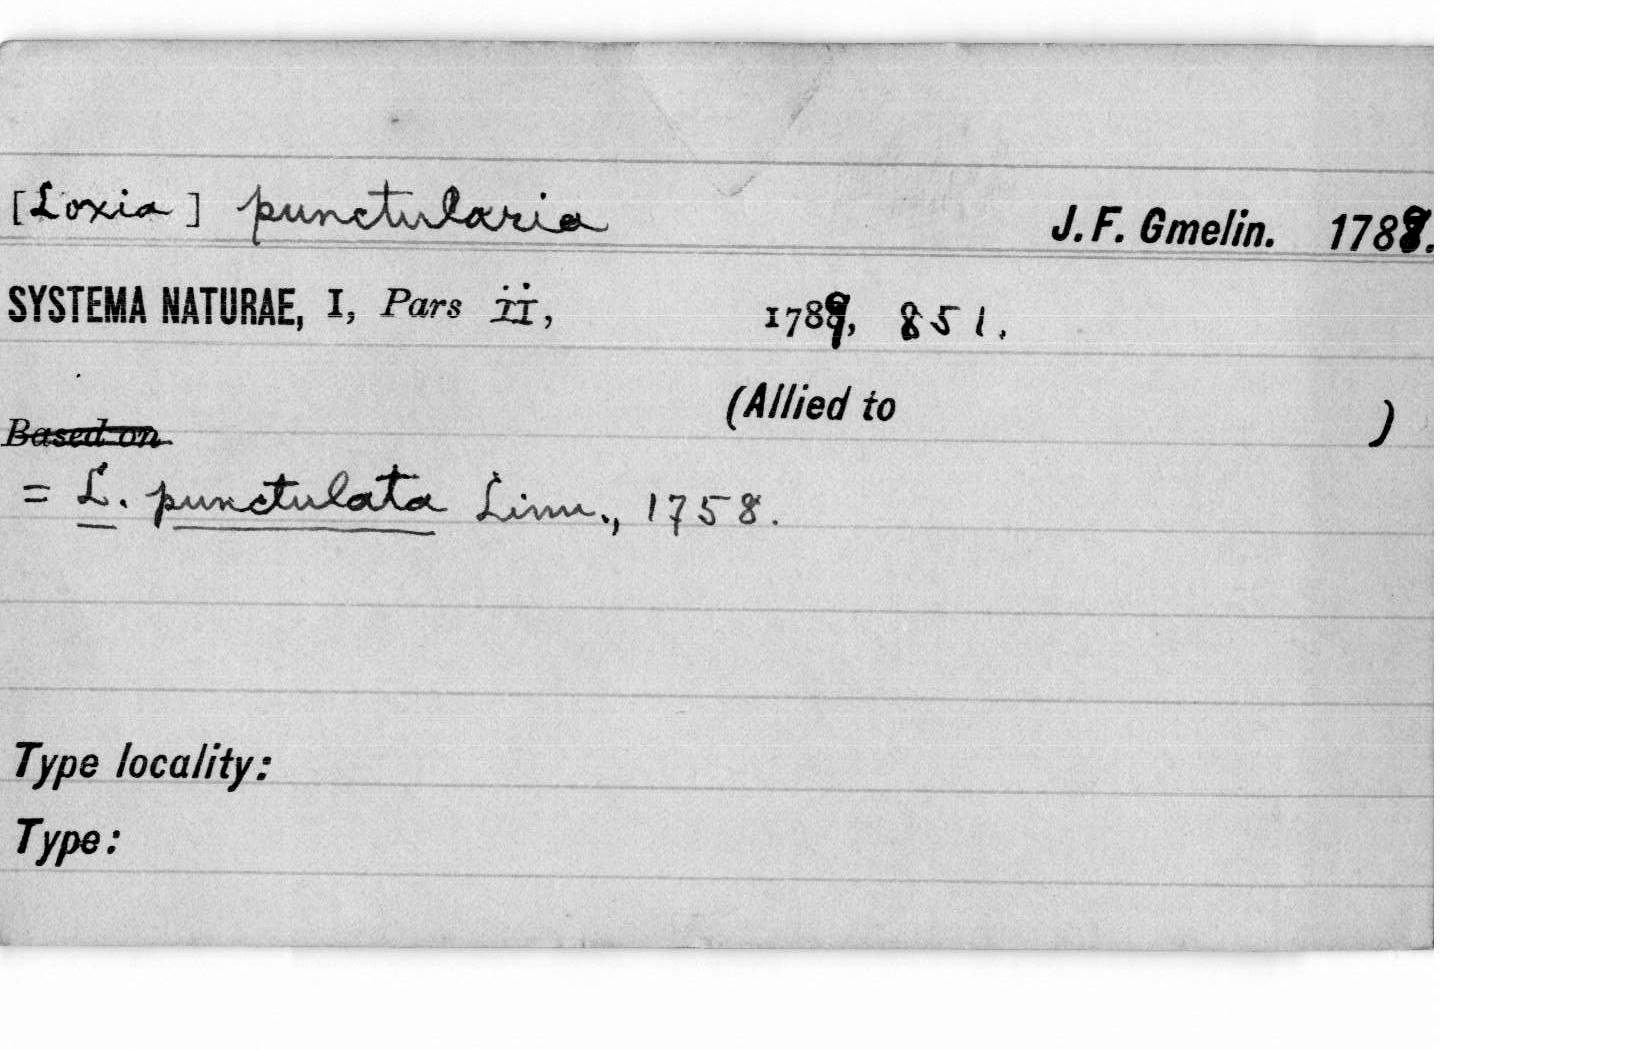 [Loxia] punctularia J. F. Gmelin. 1789.
SYSTEMA NATURAE, I, Pars ii, 1789, 851.
(Allied to )
Based on
= L. punctulata Linn., 1758.
Type locality:
Type: